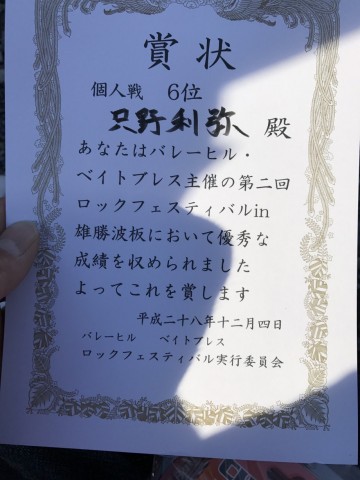 賞状
個人戦 6位
只野利弥 殿
あなたはバレーヒル・
ベイトブレス主催の第二回
ロックフェスティバルin
雄勝波板において優秀な
成績を収められました
よってこれを賞します
平成二十八年十二月四日
バレーヒル ベイトブレス
ロックフェスティバル実行委員会